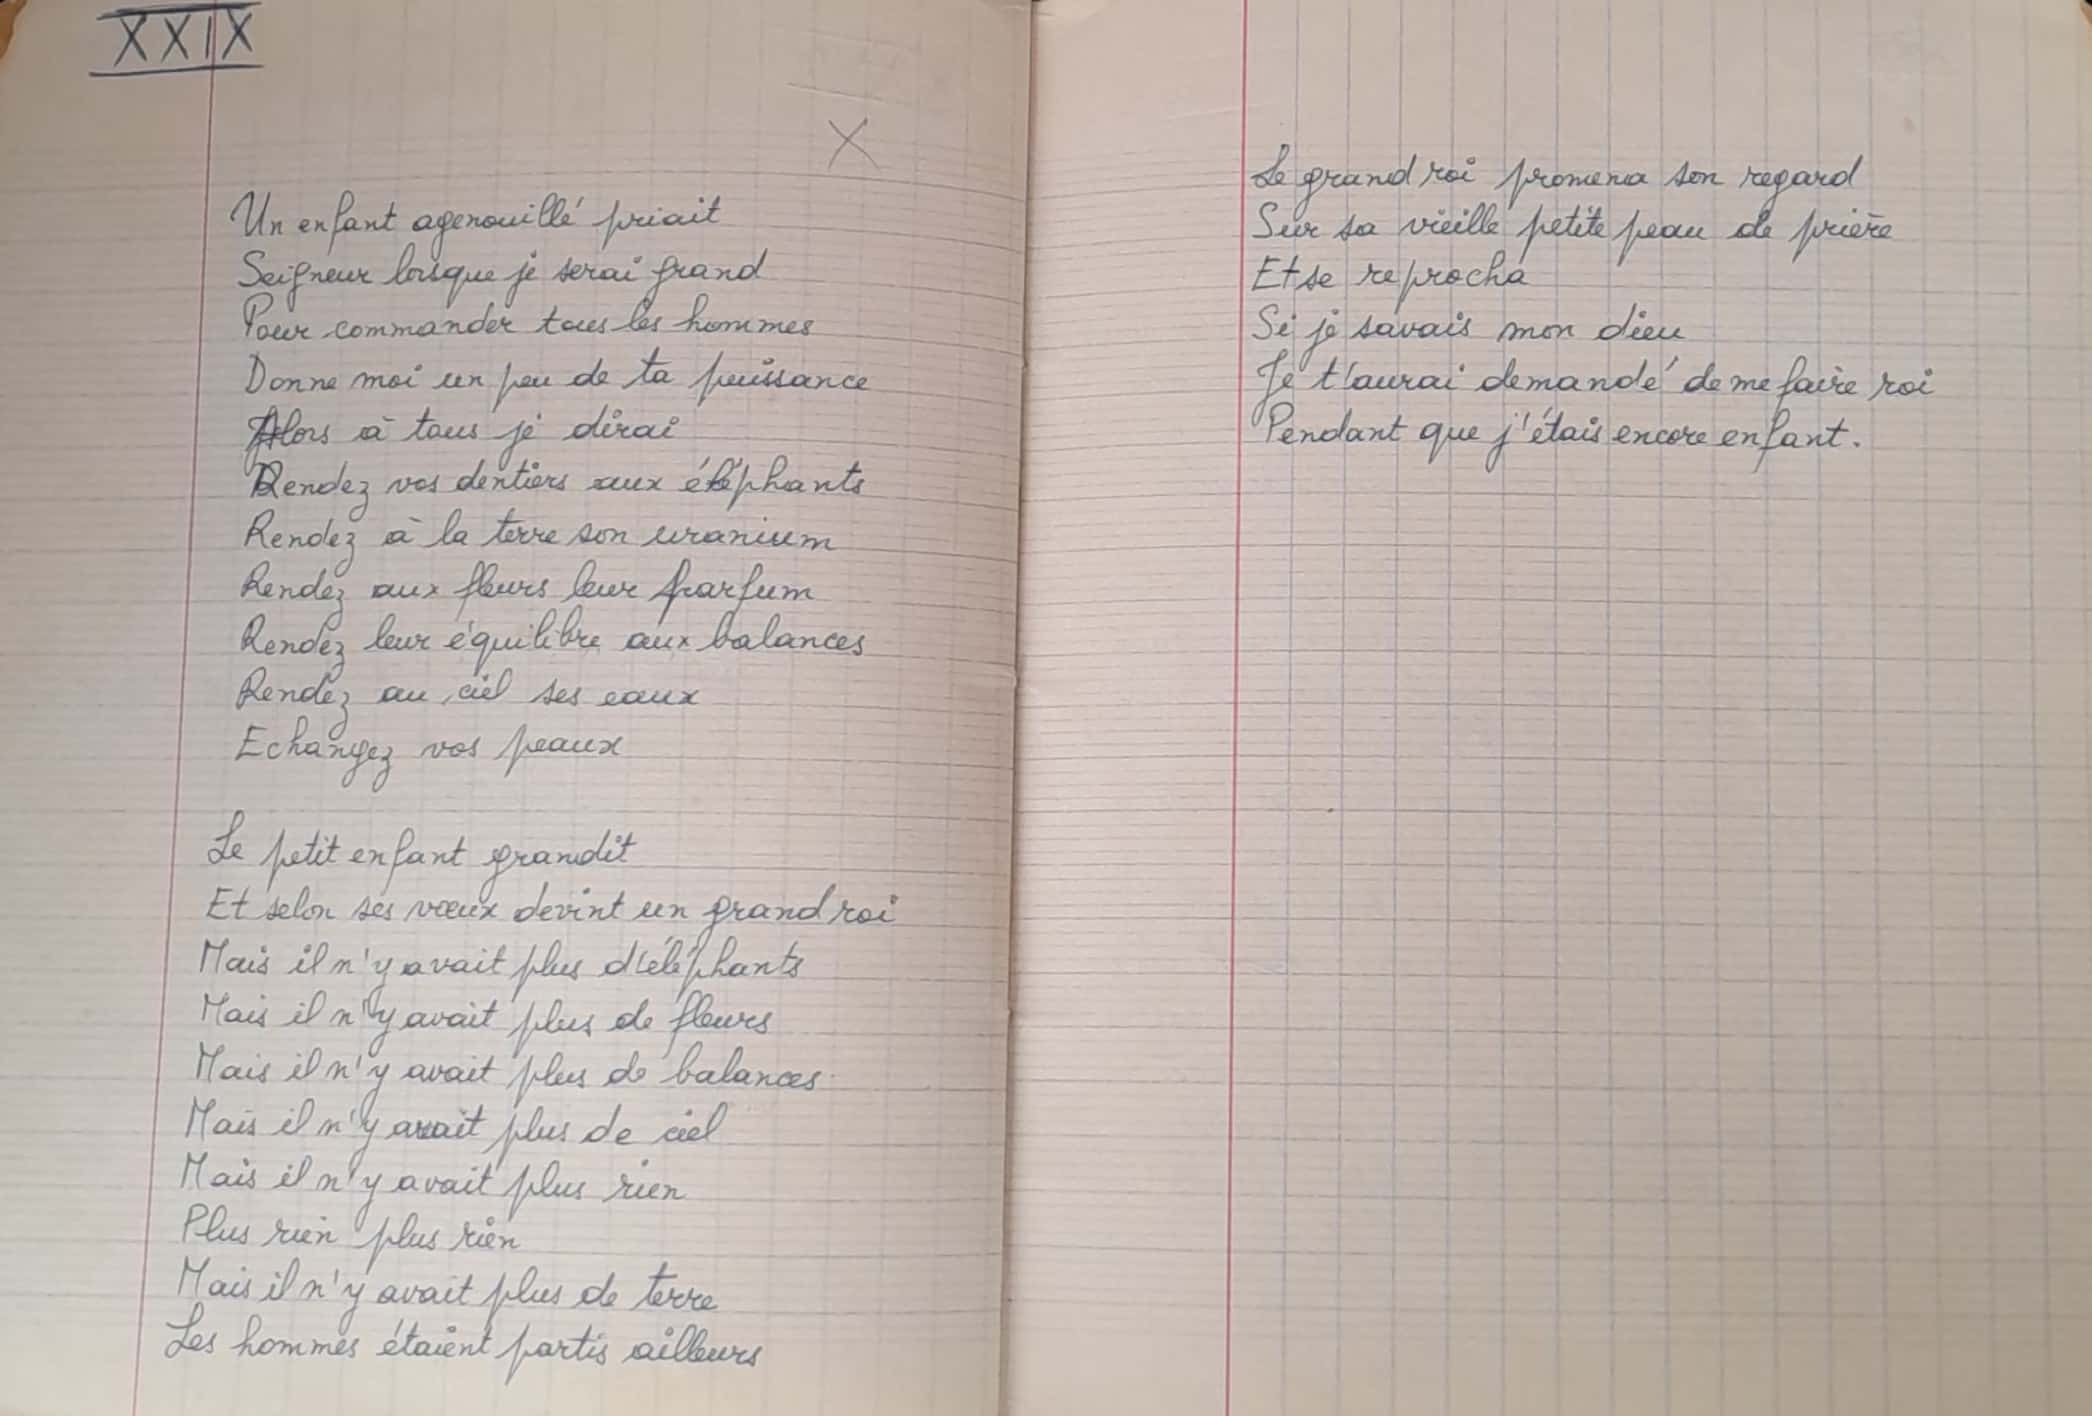 XXIX
X
Un enfant agenouillé priait
Seigneur lorsque je serai grand
Pour commander tous les hommes
Donne moi un peu de ta puissance
Alors à tous je dirai
Rendez vos dentiers aux éléphants
Rendez à la terre son uranium
Rendez aux fleurs leur parfum
Rendez leur équilibre aux balances
Rendez au ciel ses eaux
Echangez vos peaux
Le petit enfant grandit
Et selon ses vœux devint un grand roi
Mais il n'y avait plus d'éléphants
Mais il n'y avait plus de fleurs
Mais il n'y avait plus de balances
Mais il n'y avait plus de ciel
Mais il n'y avait plus rien
Plus rien plus rien
Mais il n'y avait plus de terre
Les hommes étaient partis ailleurs
Le grand roi promena son regard
Sur sa vieille petite peau de prière
Et se reprocha
Si je savais mon dieu
Je t'aurai demandé de me faire roi
Pendant que j'étais encore enfant.